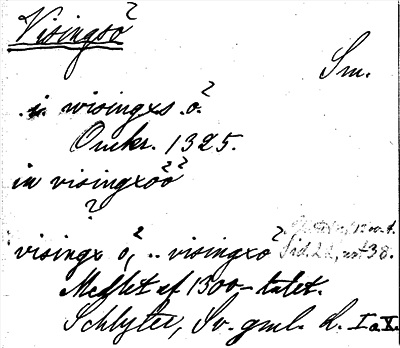 Visingsö
Sm.
in wisingxs. ö.
Omkr. 1325.
in visingxöö
visingx ö, .. visingxö Sid. 22, not 38.
Medlet af 1300-talet.
Schlyter, Sv. gml. L. I o. X.